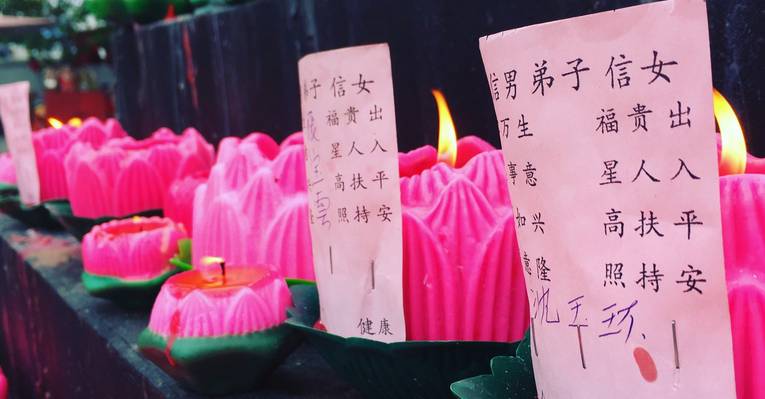 子 信女
出入平安
贵人扶持
福星高照
健康
信男 弟子 信女
出入平安
贵人扶持
福星高照
生意兴隆
万事如意